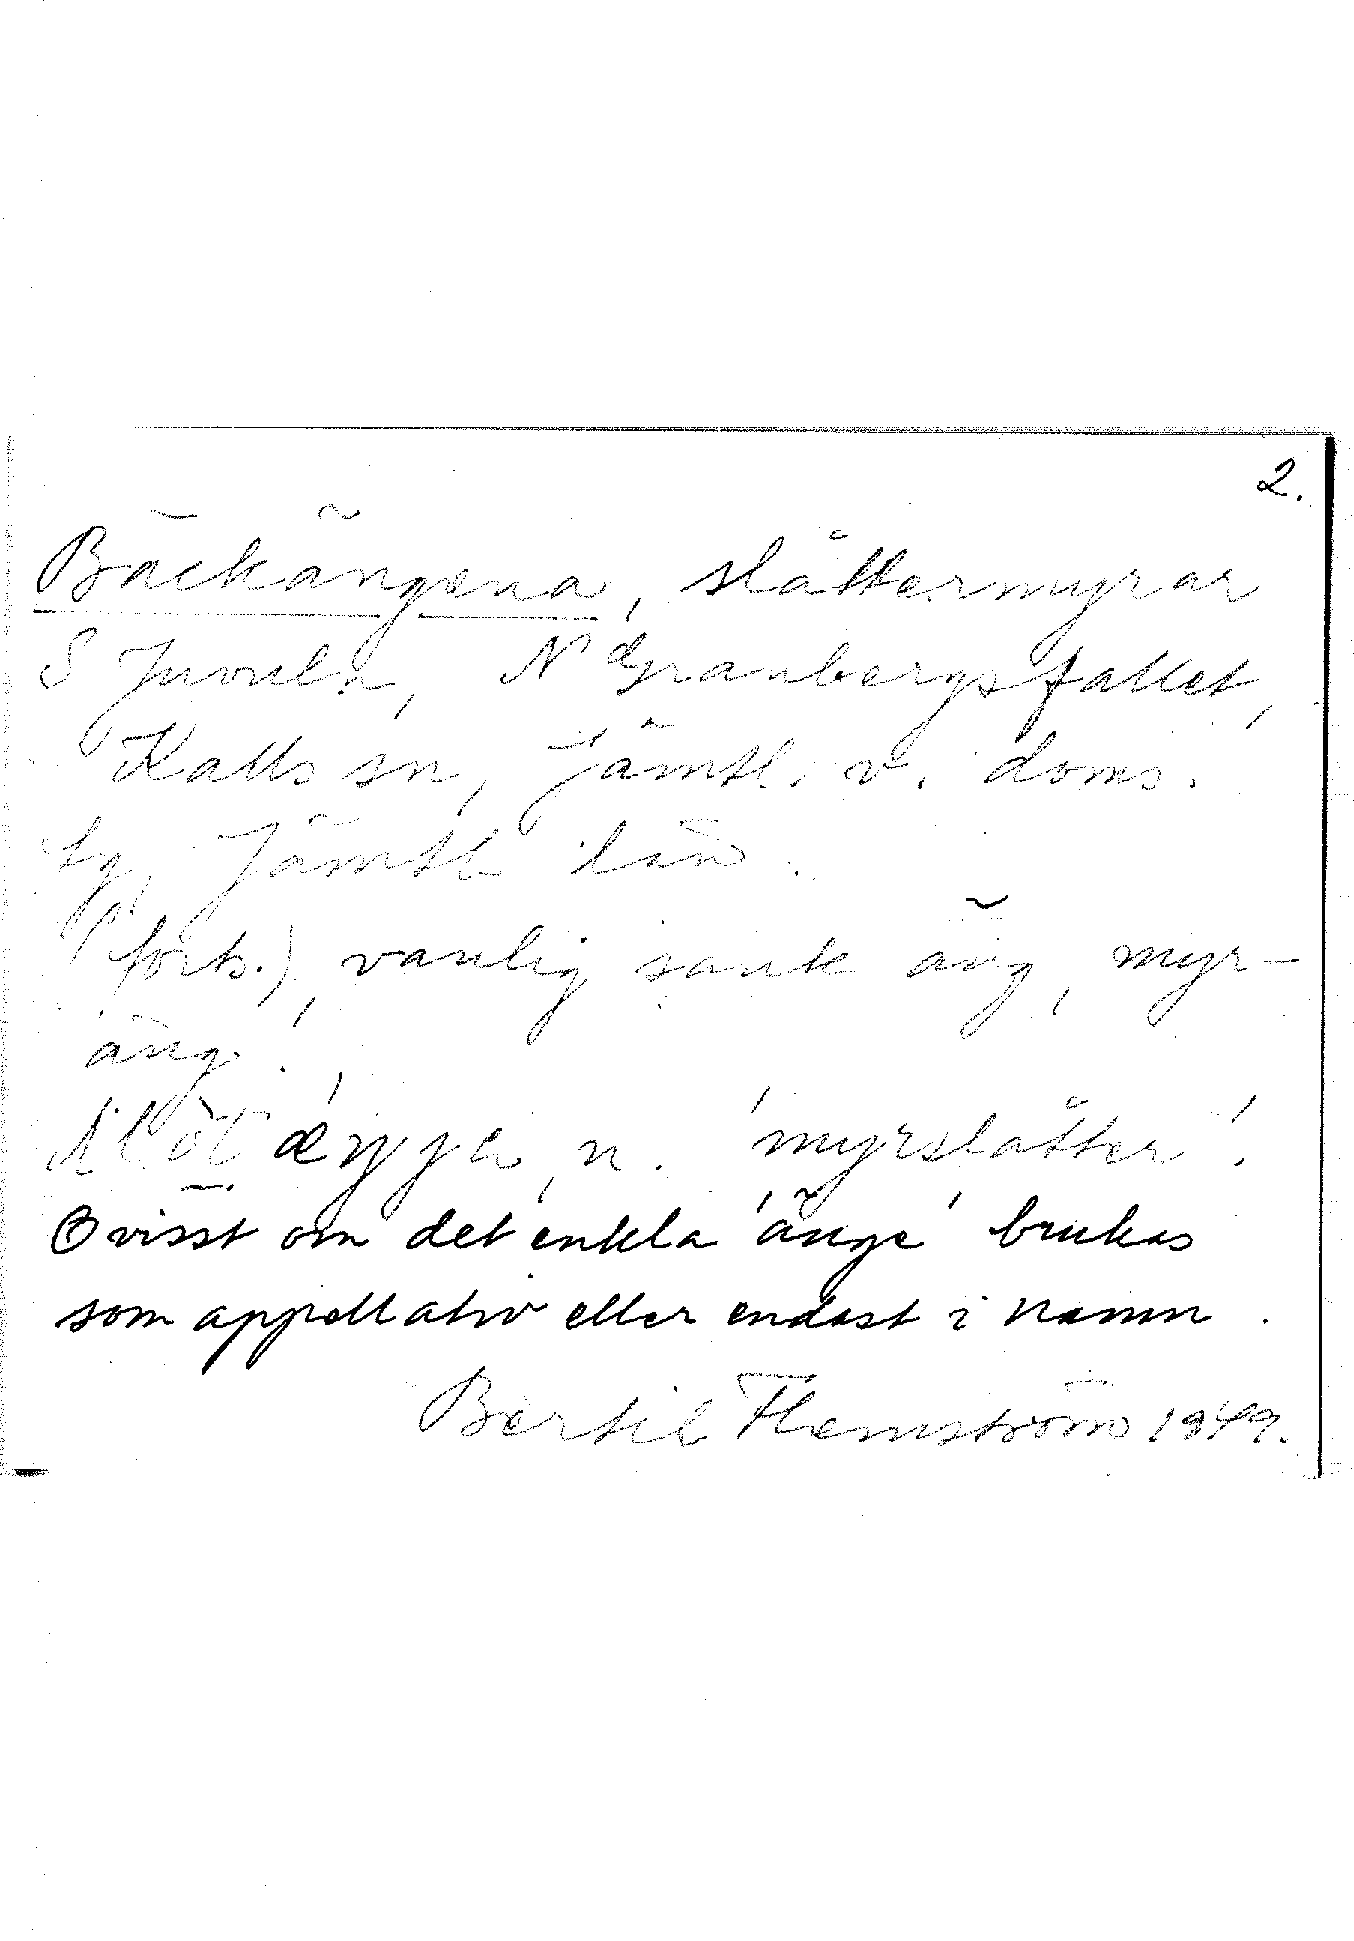 2.
Bäckängena, slåttermyrar
S Juvuln, N Granbergsfallet,
Kalls sn, Jämtl. v. doms.
sg, Jämtl län.
(forts.), vanlig sank äng, myr-
äng'.
æŋjen, n. 'myrslåtter'.
Ovisst om det enkla 'änge' brukas
som appellativ eller endast i namn.
Bertil Flemström 1949.